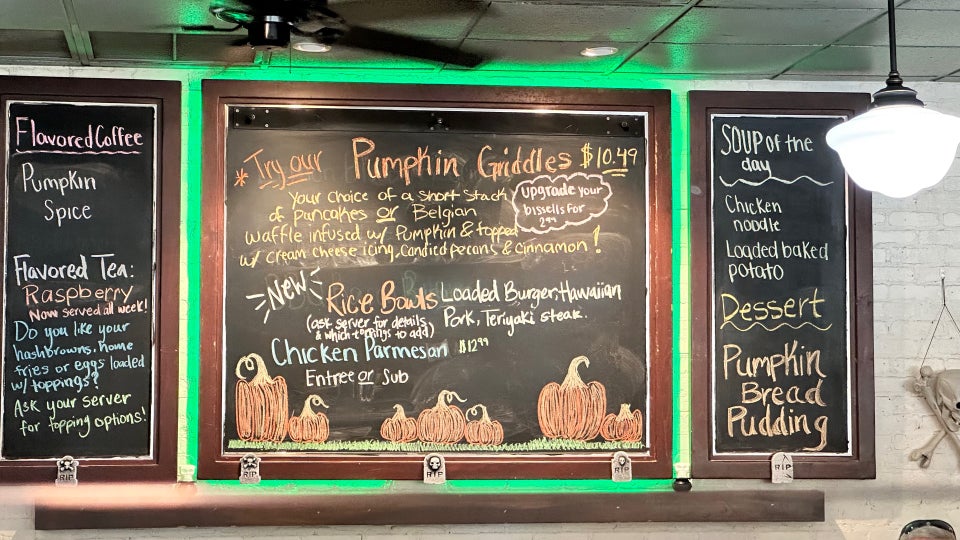 Flavored Coffee
Pumpkin
Spice
Flavored Tea:
Raspberry
Now served all week!
Do you like your
hashbrowns, home
fries or eggs loaded
w/ toppings?
Ask your server
for topping options!
* Try our Pumpkin Griddles $10.49
Your choice of a short stack
of pancakes or Belgian
waffle infused w/ Pumpkin & topped
w/ cream cheese icing, candied pecans & cinnamon!
upgrade your
bissells for
2.99
New
Rice Bowls Loaded Burger, Hawaiian
Pork, Teriyaki steak.
(ask server for details
& which toppings to add)
Chicken Parmesan $12.99
Entree or Sub
Soup of the
day
Chicken
noodle
Loaded baked
potato
Dessert
Pumpkin
Bread
Pudding
RIP
RIP
RIP
RIP
RIP